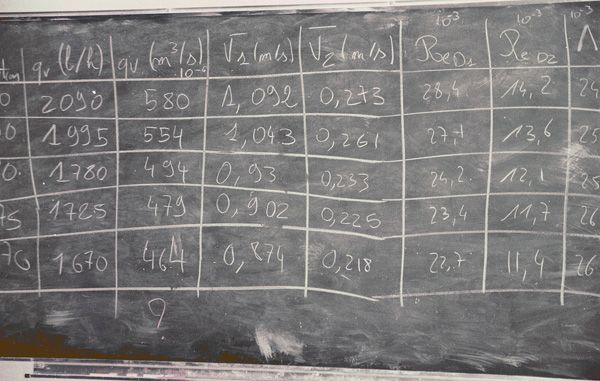 10⁻³ 10⁻³ 10⁻³
qv (l/h) qv (m³/s) V₁ (m/s) V₂ (m/s) ReD₁ ReD₂ Λ
10⁻⁶
0 2090 580 1,092 0,273 28,4 14,2 24
0 1995 554 1,043 0,261 27,1 13,6 25
0 1780 494 0,93 0,233 24,2 12,1 25
75 1725 479 0,902 0,225 23,4 11,7 26
70 1670 464 0,874 0,218 22,7 11,4 26